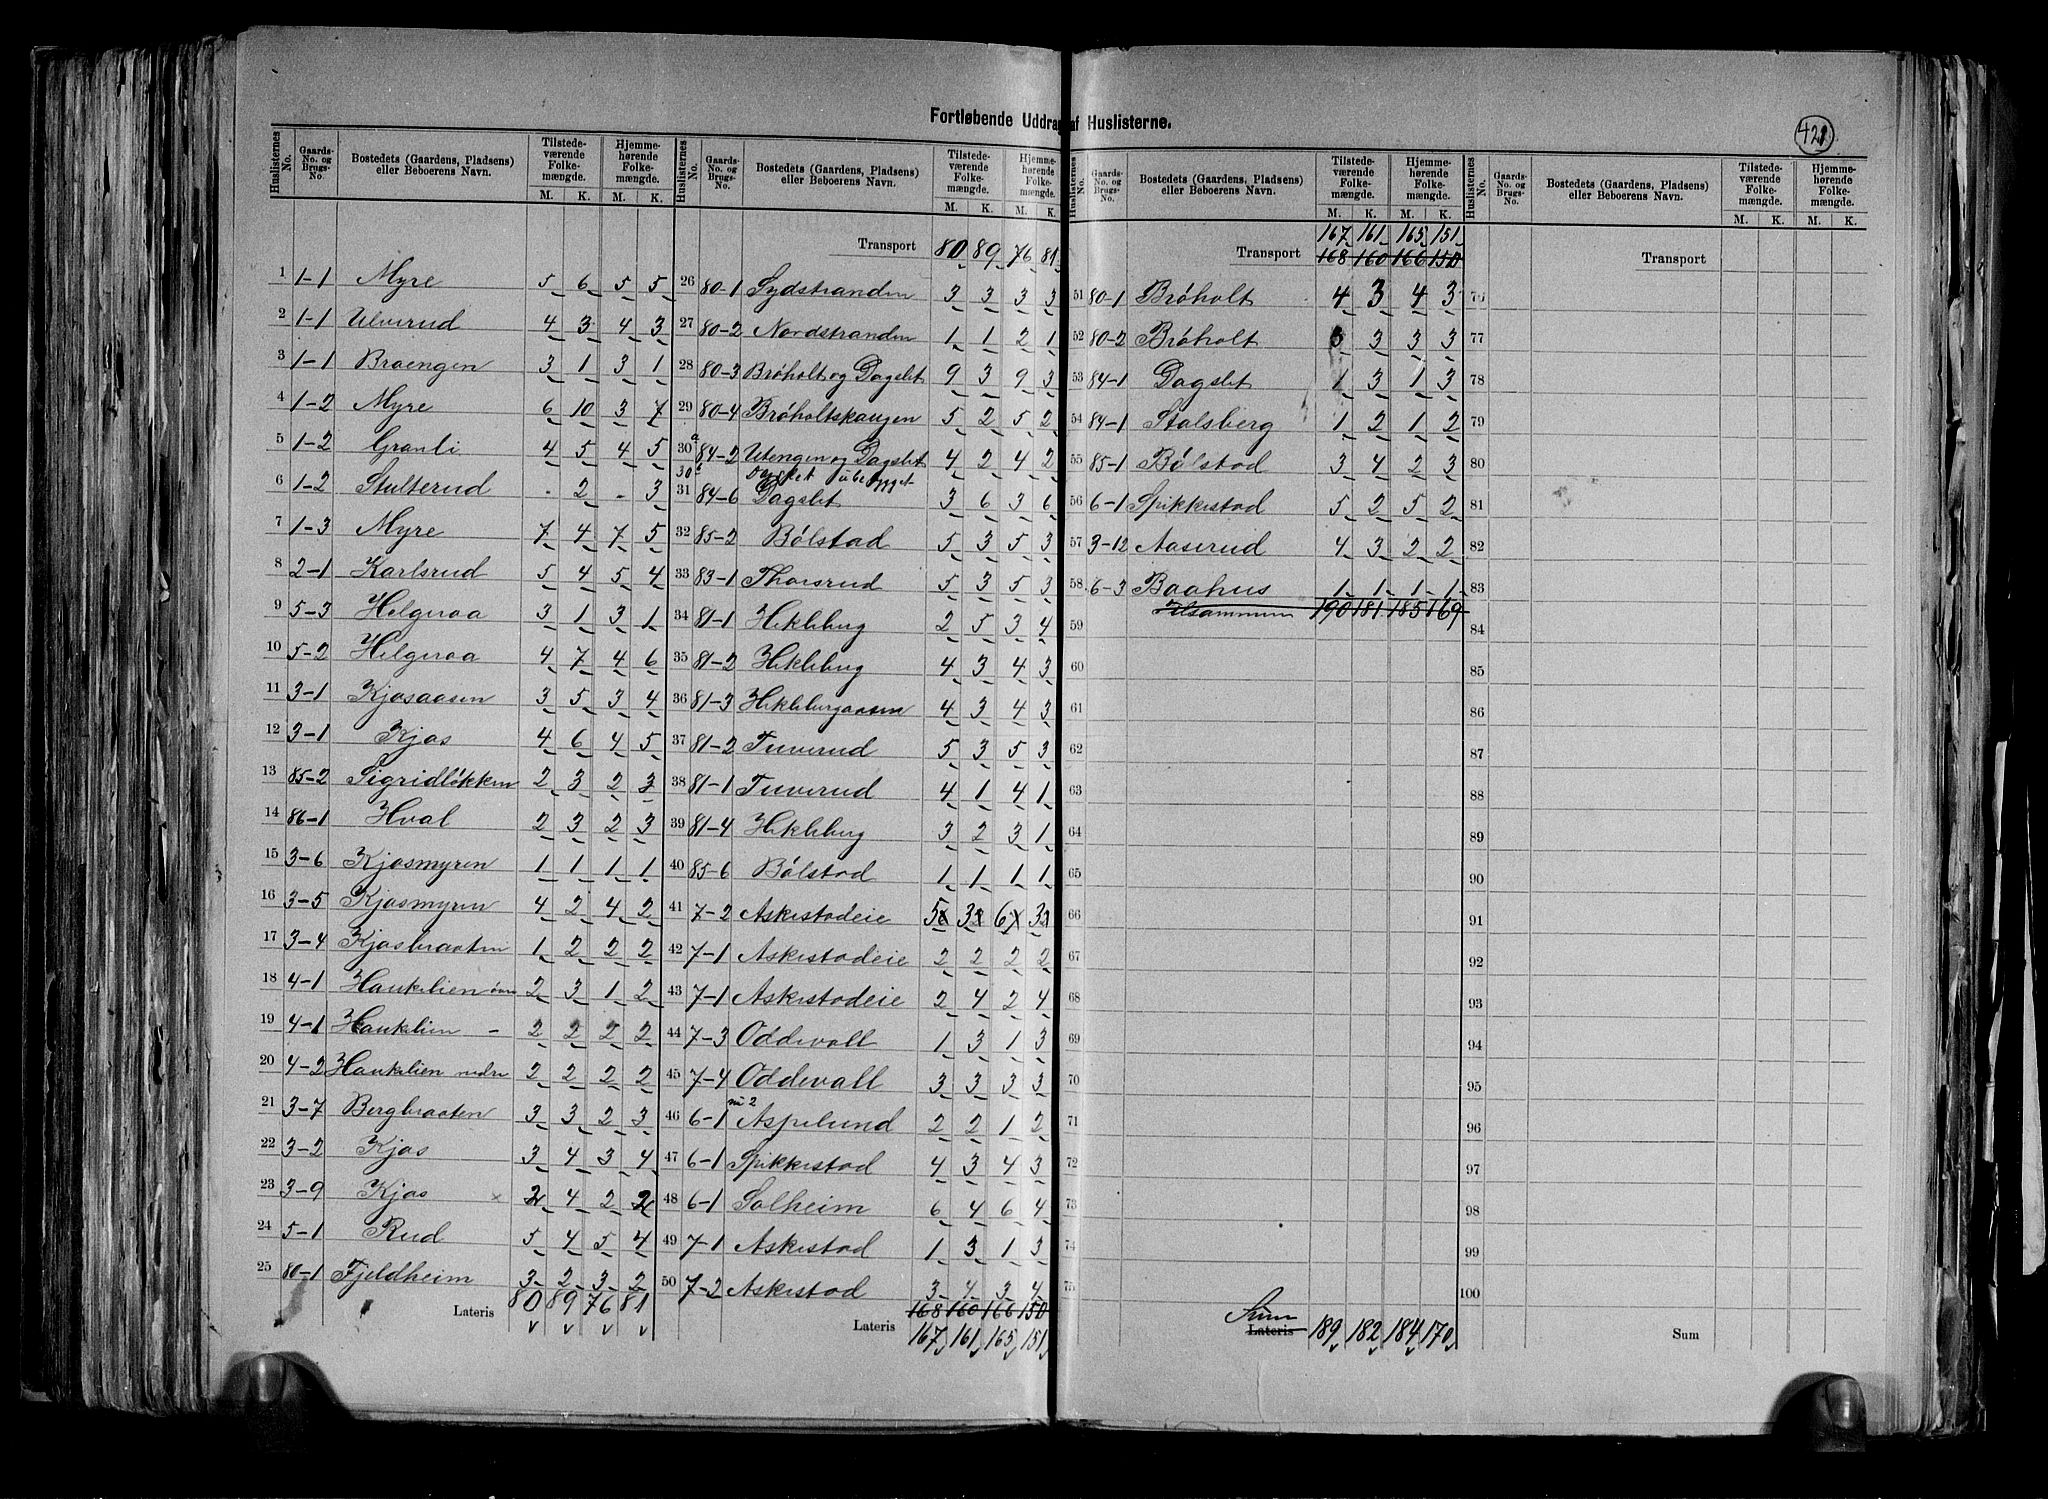 Fortløbende Uddrag af Huslisterne.
421
Huslisternes No. | Gaards-No. og Brugs-No. | Bostedets (Gaardens, Pladsen) eller Beboerens Navn. | Tilstedeværende Folkemængde. M. K. | Hjemmehørende Folkemængde. M. K.
1 1-1 Myre 5 6 5 5
2 1-1 Ulverud 4 3 4 3
3 1-1 Braengen 3 1 3 1
4 1-2 Myre 6 10 3 7
5 1-2 Granli 4 5 4 5
6 1-2 Stulterud - 2 - 3
7 1-3 Myre 7 4 7 5
8 2-1 Karlsrud 5 4 5 4
9 5-3 Helgeraa 3 1 3 1
10 5-2 Helgeraa 4 7 4 6
11 3-1 Kjosaasen 3 5 3 4
12 3-1 Kjos 4 6 4 5
13 85-2 Sigridløkken 2 3 2 3
14 86-1 Hval 2 3 2 3
15 3-6 Kjosmyren 1 1 1 1
16 3-5 Kjosmyren 4 2 4 2
17 3-4 Kjosbraaten 1 2 2 2
18 4-1 Haukelien øvre 2 3 1 2
19 4-1 Haukelien - 2 2 2 2
20 4-2 Haukelien nedre 2 2 2 2
21 3-7 Bergbraaten 3 3 2 3
22 3-2 Kjos 3 4 3 4
23 3-9 Kjos × 2 4 2 2
24 5-1 Rud 5 4 5 4
25 80-1 Fjeldheim 3 2 3 2
Lateris 80 89 76 81
Huslisternes No. | Gaards-No. og Brugs-No. | Bostedets (Gaardens, Pladsen) eller Beboerens Navn. | Tilstedeværende Folkemængde. M. K. | Hjemmehørende Folkemængde. M. K.
Transport 80 89 76 81
26 80-1 Sydstranden 3 3 3 3
27 80-2 Nordstranden 1 1 2 1
28 80-3 Brøholt og Dagslet 9 3 9 3
29 80-4 Brøholtskaugen 5 2 5 2
30a 84-2 Utengen og Dagslet 4 2 4 2
31 84-6 Dagslet 3 6 3 6
32 85-2 Bølstad 5 3 5 3
33 83-1 Thorsrud 5 3 5 3
34 81-1 Hekleberg 2 5 3 4
35 81-2 Hekleberg 4 3 4 3
36 81-3 Heklebergaasen 4 3 4 3
37 81-2 Tuverud 5 3 5 3
38 81-1 Tuverud 4 1 4 1
39 81-4 Hekleberg 3 2 3 1
40 85-6 Bølstad 1 1 1 1
41 7-2 Askestadeie 5 3 6 3
42 7-1 Askestadeie 2 2 2 2
43 7-1 Askestadeie 2 4 2 4
44 7-3 Oddevall 1 3 1 3
45 7-4 Oddevall 3 3 3 3
46 6-1 Aspelund 2 2 1 2
47 6-1 Spikkestad 4 3 4 3
48 6-1 Solheim 6 4 6 4
49 7-1 Askestad 1 3 1 3
50 7-2 Askestad 3 4 3 4
168 160 166 150
Lateris 167 161 165 151
Huslisternes No. | Gaards-No. og Brugs-No. | Bostedets (Gaardens, Pladsen) eller Beboerens Navn. | Tilstedeværende Folkemængde. M. K. | Hjemmehørende Folkemængde. M. K.
167 161 165 151
Transport 168 160 166 150
51 80-1 Brøholt 4 3 4 3
52 80-2 Brøholt 3 3 3 3
53 84-1 Dagslet 1 3 1 3
54 84-1 Stalsberg 1 2 1 2
55 85-1 Bølstad 3 4 2 3
56 6-1 Spikkestad 5 2 5 2
57 3-12 Aaserud 4 3 2 2
58 6-3 Baahus 1 1 1 1
59 Tilsammen 190 181 185 169
60
61
62
63
64
65
66
67
68
69
70
71
72
73
74
75
Sum
Lateris 189 182 184 170
Huslisternes No. | Gaards-No. og Brugs-No. | Bostedets (Gaardens, Pladsen) eller Beboerens Navn. | Tilstedeværende Folkemængde. M. K. | Hjemmehørende Folkemængde. M. K.
Transport
76
77
78
79
80
81
82
83
84
85
86
87
88
89
90
91
92
93
94
95
96
97
98
99
100
Sum